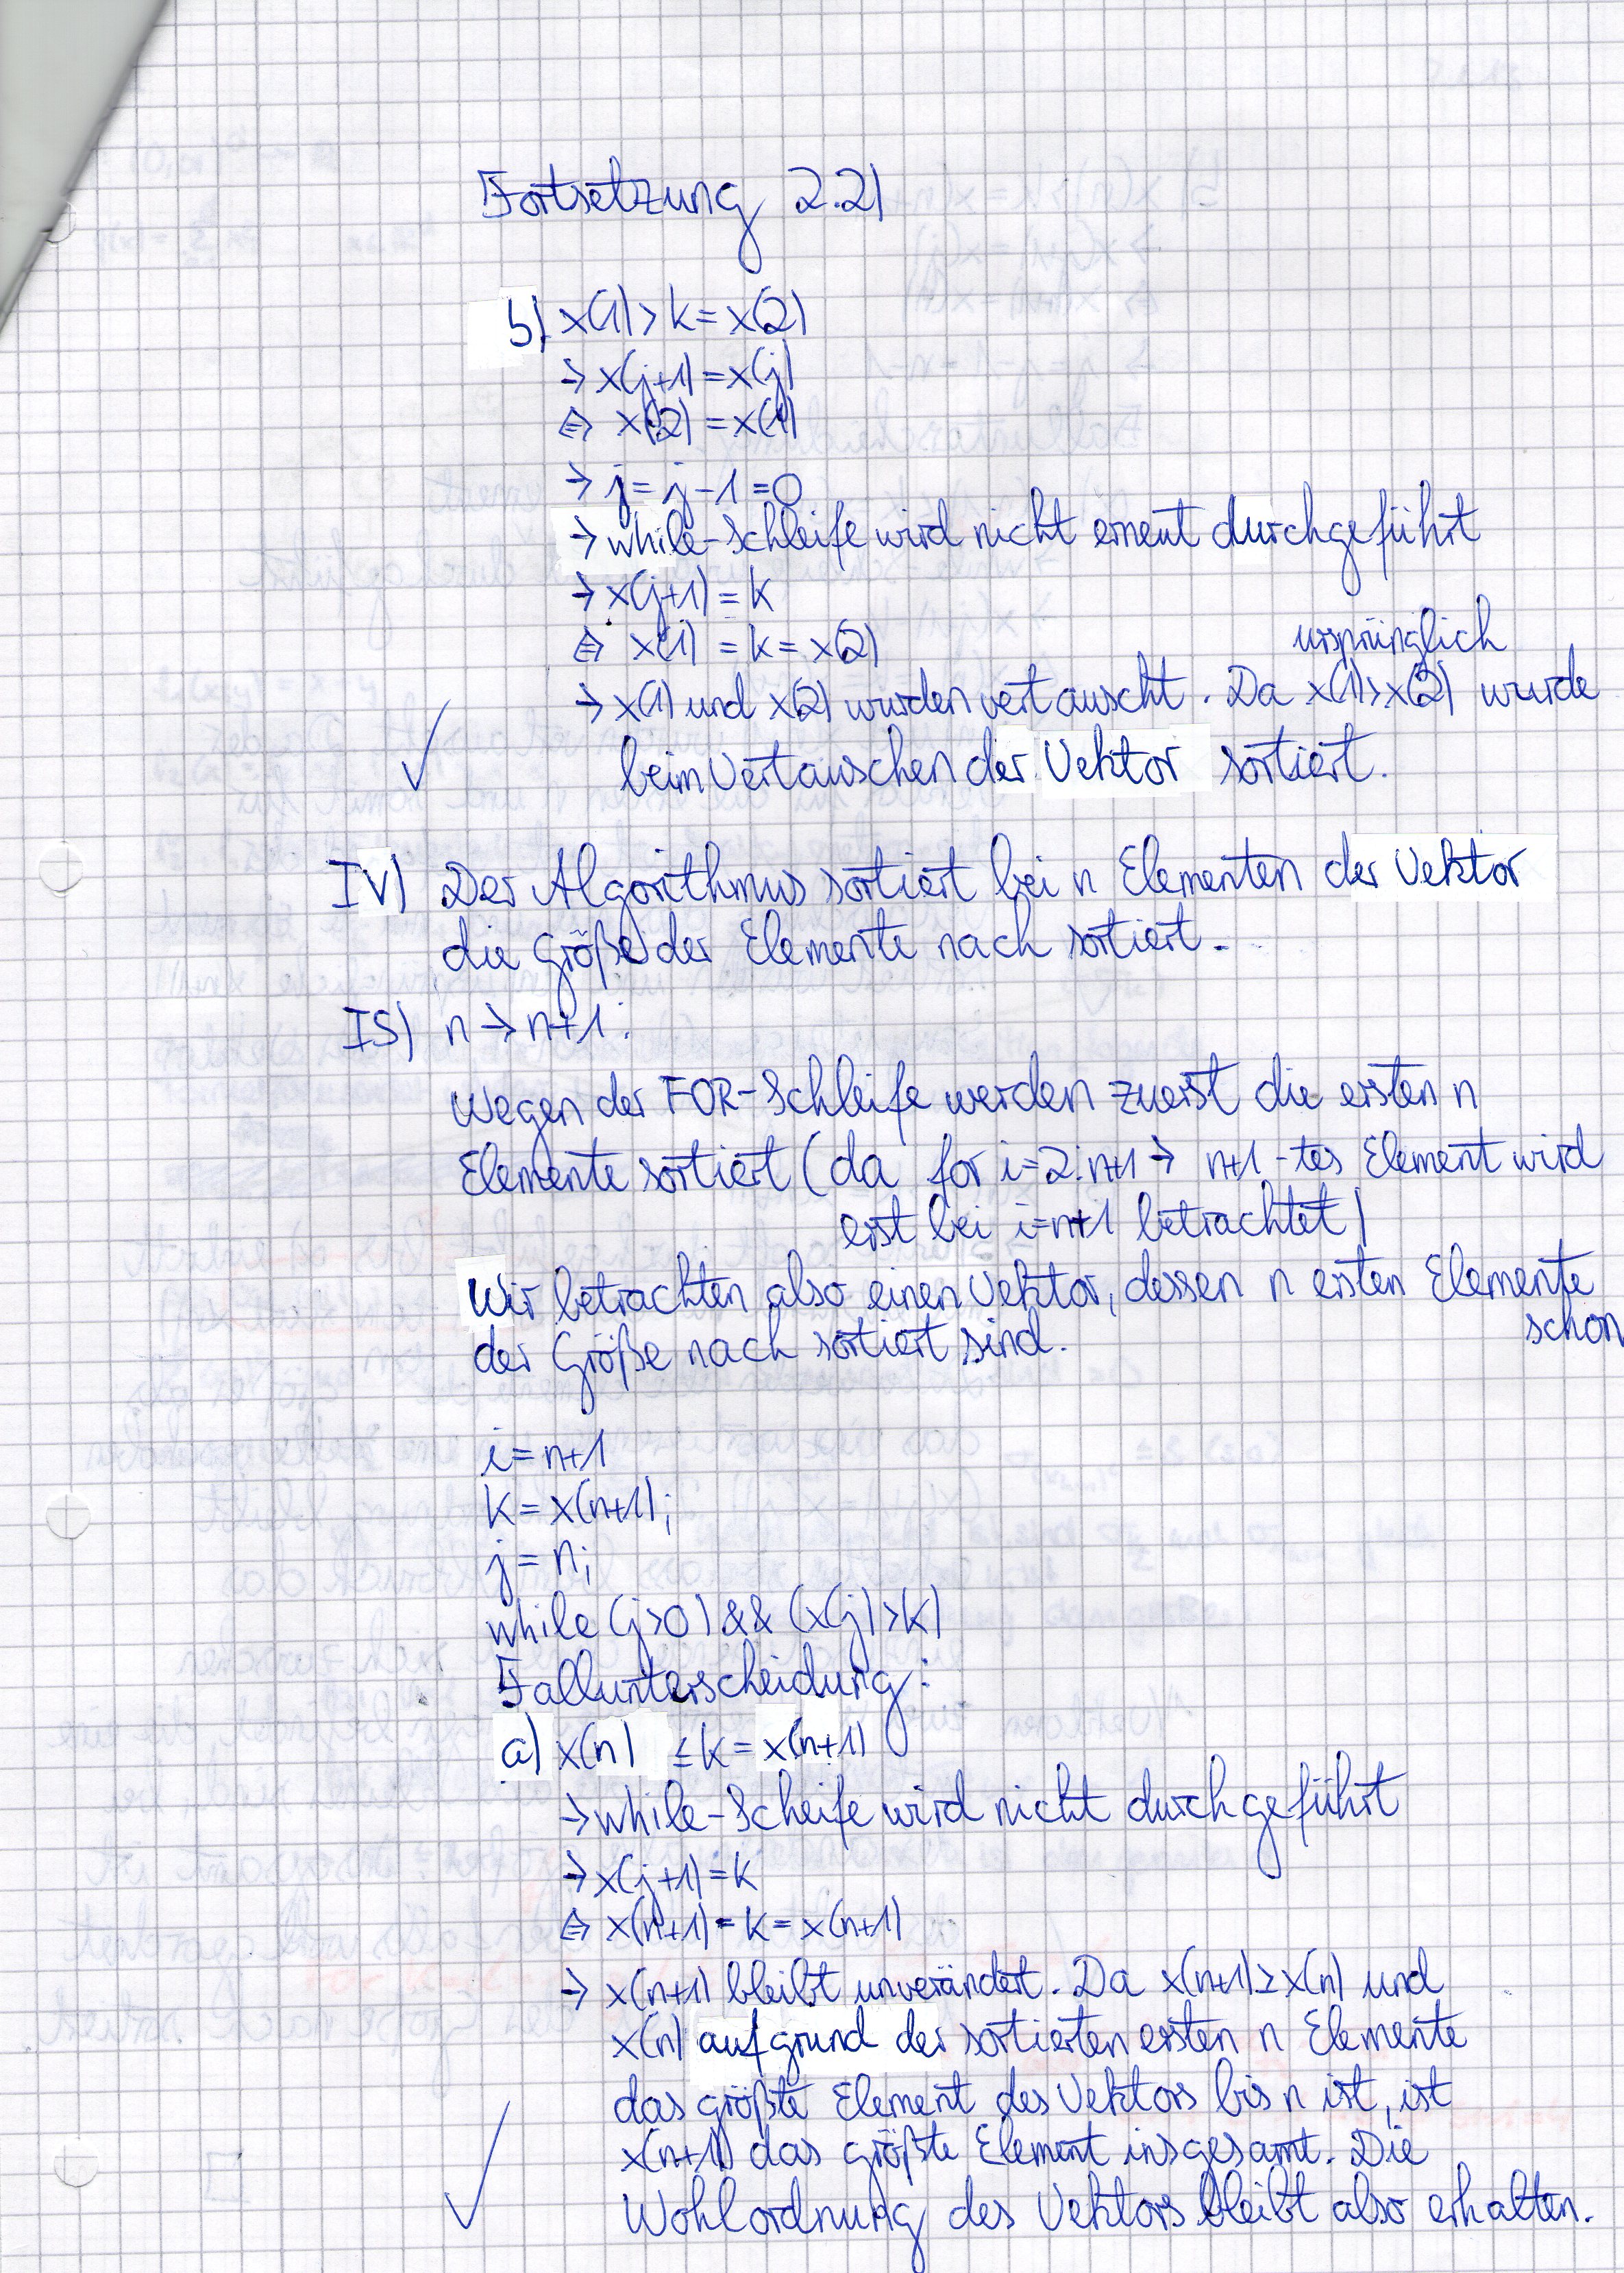 Fortsetzung 2.2)
b) x(1) > k = x(2)
→ x(j+1) = x(j)
⇔ x(2) = x(1)
→ j = j - 1 = 0
→ while-Schleife wird nicht erneut durchgeführt
→ x(j+1) = k
⇔ x(1) = k = x(2)
ursprünglich
→ x(1) und x(2) wurden vertauscht. Da x(1)>x(2) wurde
beim Vertauschen der Vektor sortiert.
IV) Der Algorithmus sortiert bei n Elementen der Vektor
die Größe der Elemente nach sortiert.
IS) n → n+1:
Wegen der FOR-Schleife werden zuerst die ersten n
Elemente sortiert (da for i=2:n+1 → n+1-tes Element wird
erst bei i=n+1 betrachtet)
Wir betrachten also einen Vektor, dessen n ersten Elemente
schon
der Größe nach sortiert sind.
i = n+1
k = x(n+1);
j = n;
while (j>0) && (x(j)>k)
Fallunterscheidung:
a) x(n) ≤ k = x(n+1)
→ while-Scheife wird nicht durchgeführt
→ x(j+1) = k
⇔ x(n+1) = k = x(n+1)
→ x(n+1) bleibt unverändert. Da x(n+1) ≥ x(n) und
x(n) aufgrund der sortierten ersten n Elemente
das größte Element des Vektors bis n ist, ist
x(n+1) das größte Element insgesamt. Die
Wohlordnung des Vektors bleibt also erhalten.